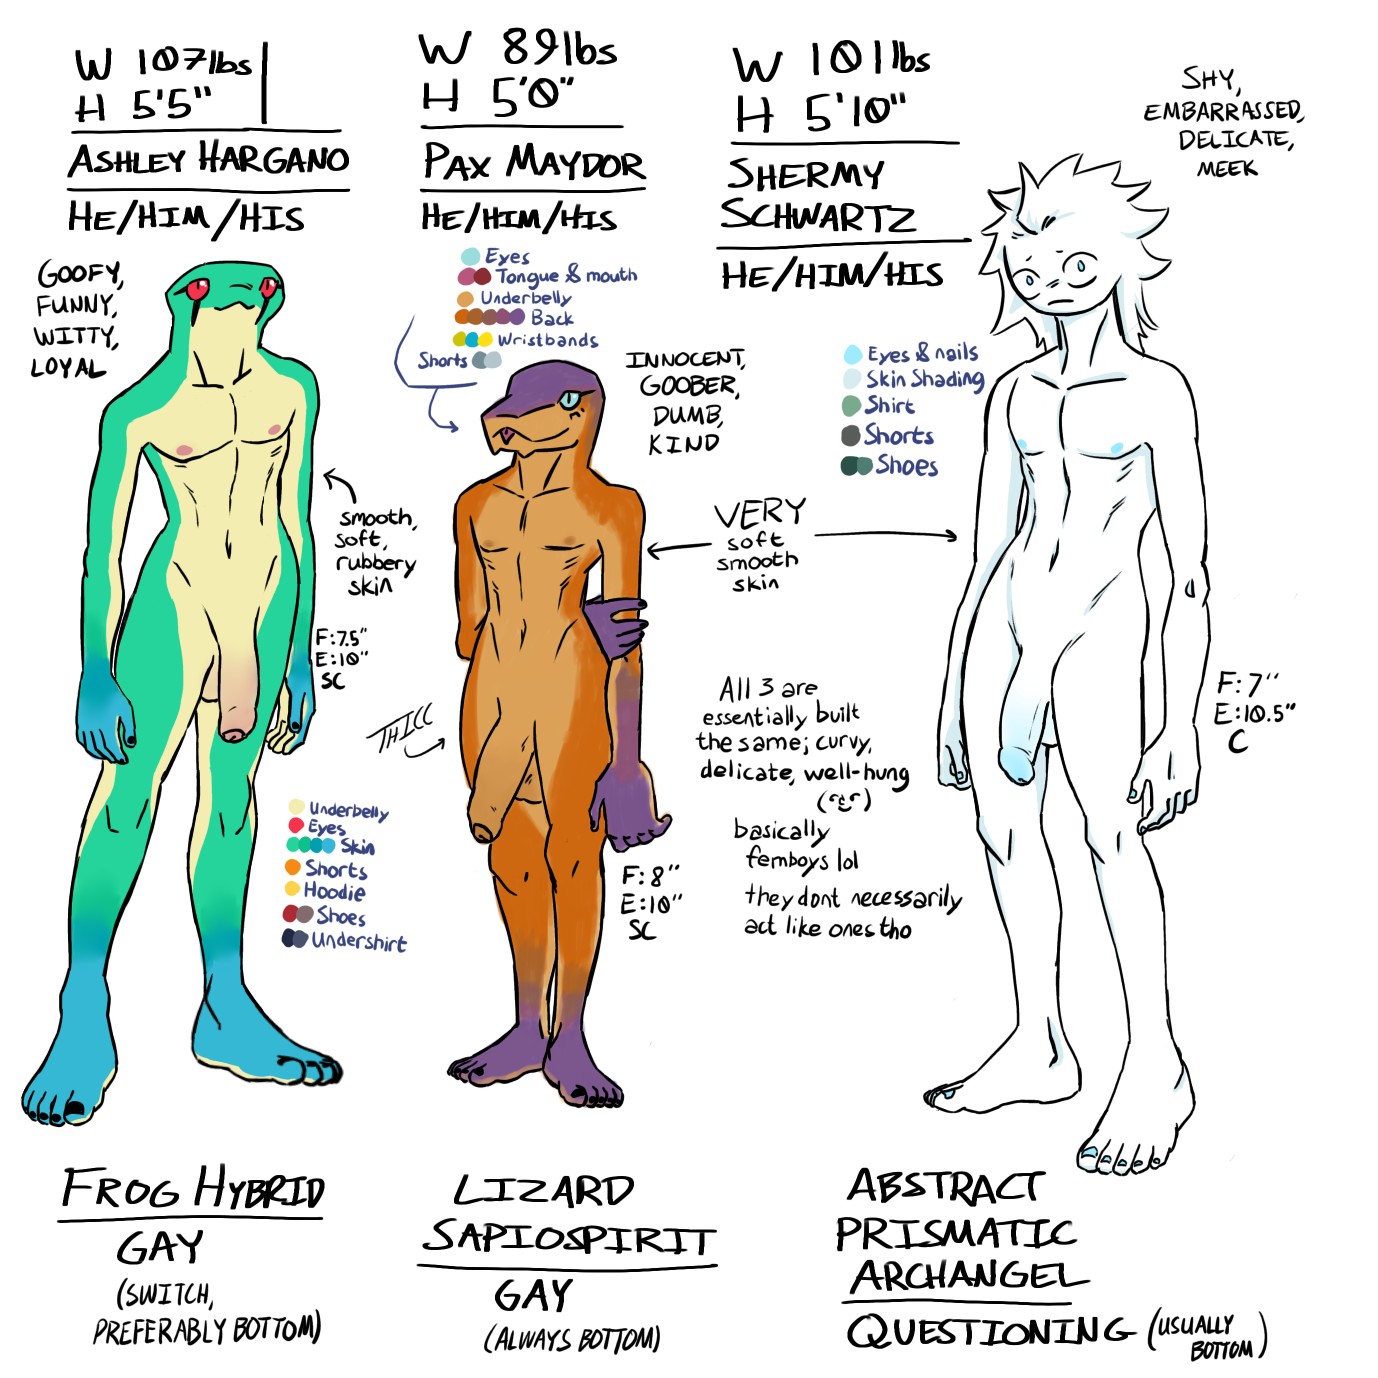 W 107lbs
H 5'5"
ASHLEY HARGANO
HE/HIM/HIS
GOOFY,
FUNNY,
WITTY,
LOYAL
smooth,
soft,
rubbery
skin
F:7.5"
E:10"
SC
Underbelly
Eyes
Skin
Shorts
Hoodie
Shoes
Undershirt
FROG HYBRID
GAY
(SWITCH,
PREFERABLY BOTTOM)
W 89lbs
H 5'0"
PAX MAYDOR
HE/HIM/HIS
Eyes
Tongue & mouth
Underbelly
Back
Wristbands
Shorts
INNOCENT,
GOOBER,
DUMB,
KIND
VERY
soft
smooth
skin
THICC
F:8"
E:10"
SC
All 3 are
essentially built
the same; curvy,
delicate, well-hung
basically
femboys lol
they dont necessarily
act like ones tho
LIZARD
SAPIOSPIRIT
GAY
(ALWAYS BOTTOM)
W 101lbs
H 5'10"
SHERMY
SCHWARTZ
HE/HIM/HIS
SHY,
EMBARRASSED,
DELICATE,
MEEK
Eyes & nails
Skin Shading
Shirt
Shorts
Shoes
F:7"
E:10.5"
C
ABSTRACT
PRISMATIC
ARCHANGEL
QUESTIONING (USUALLY
BOTTOM)